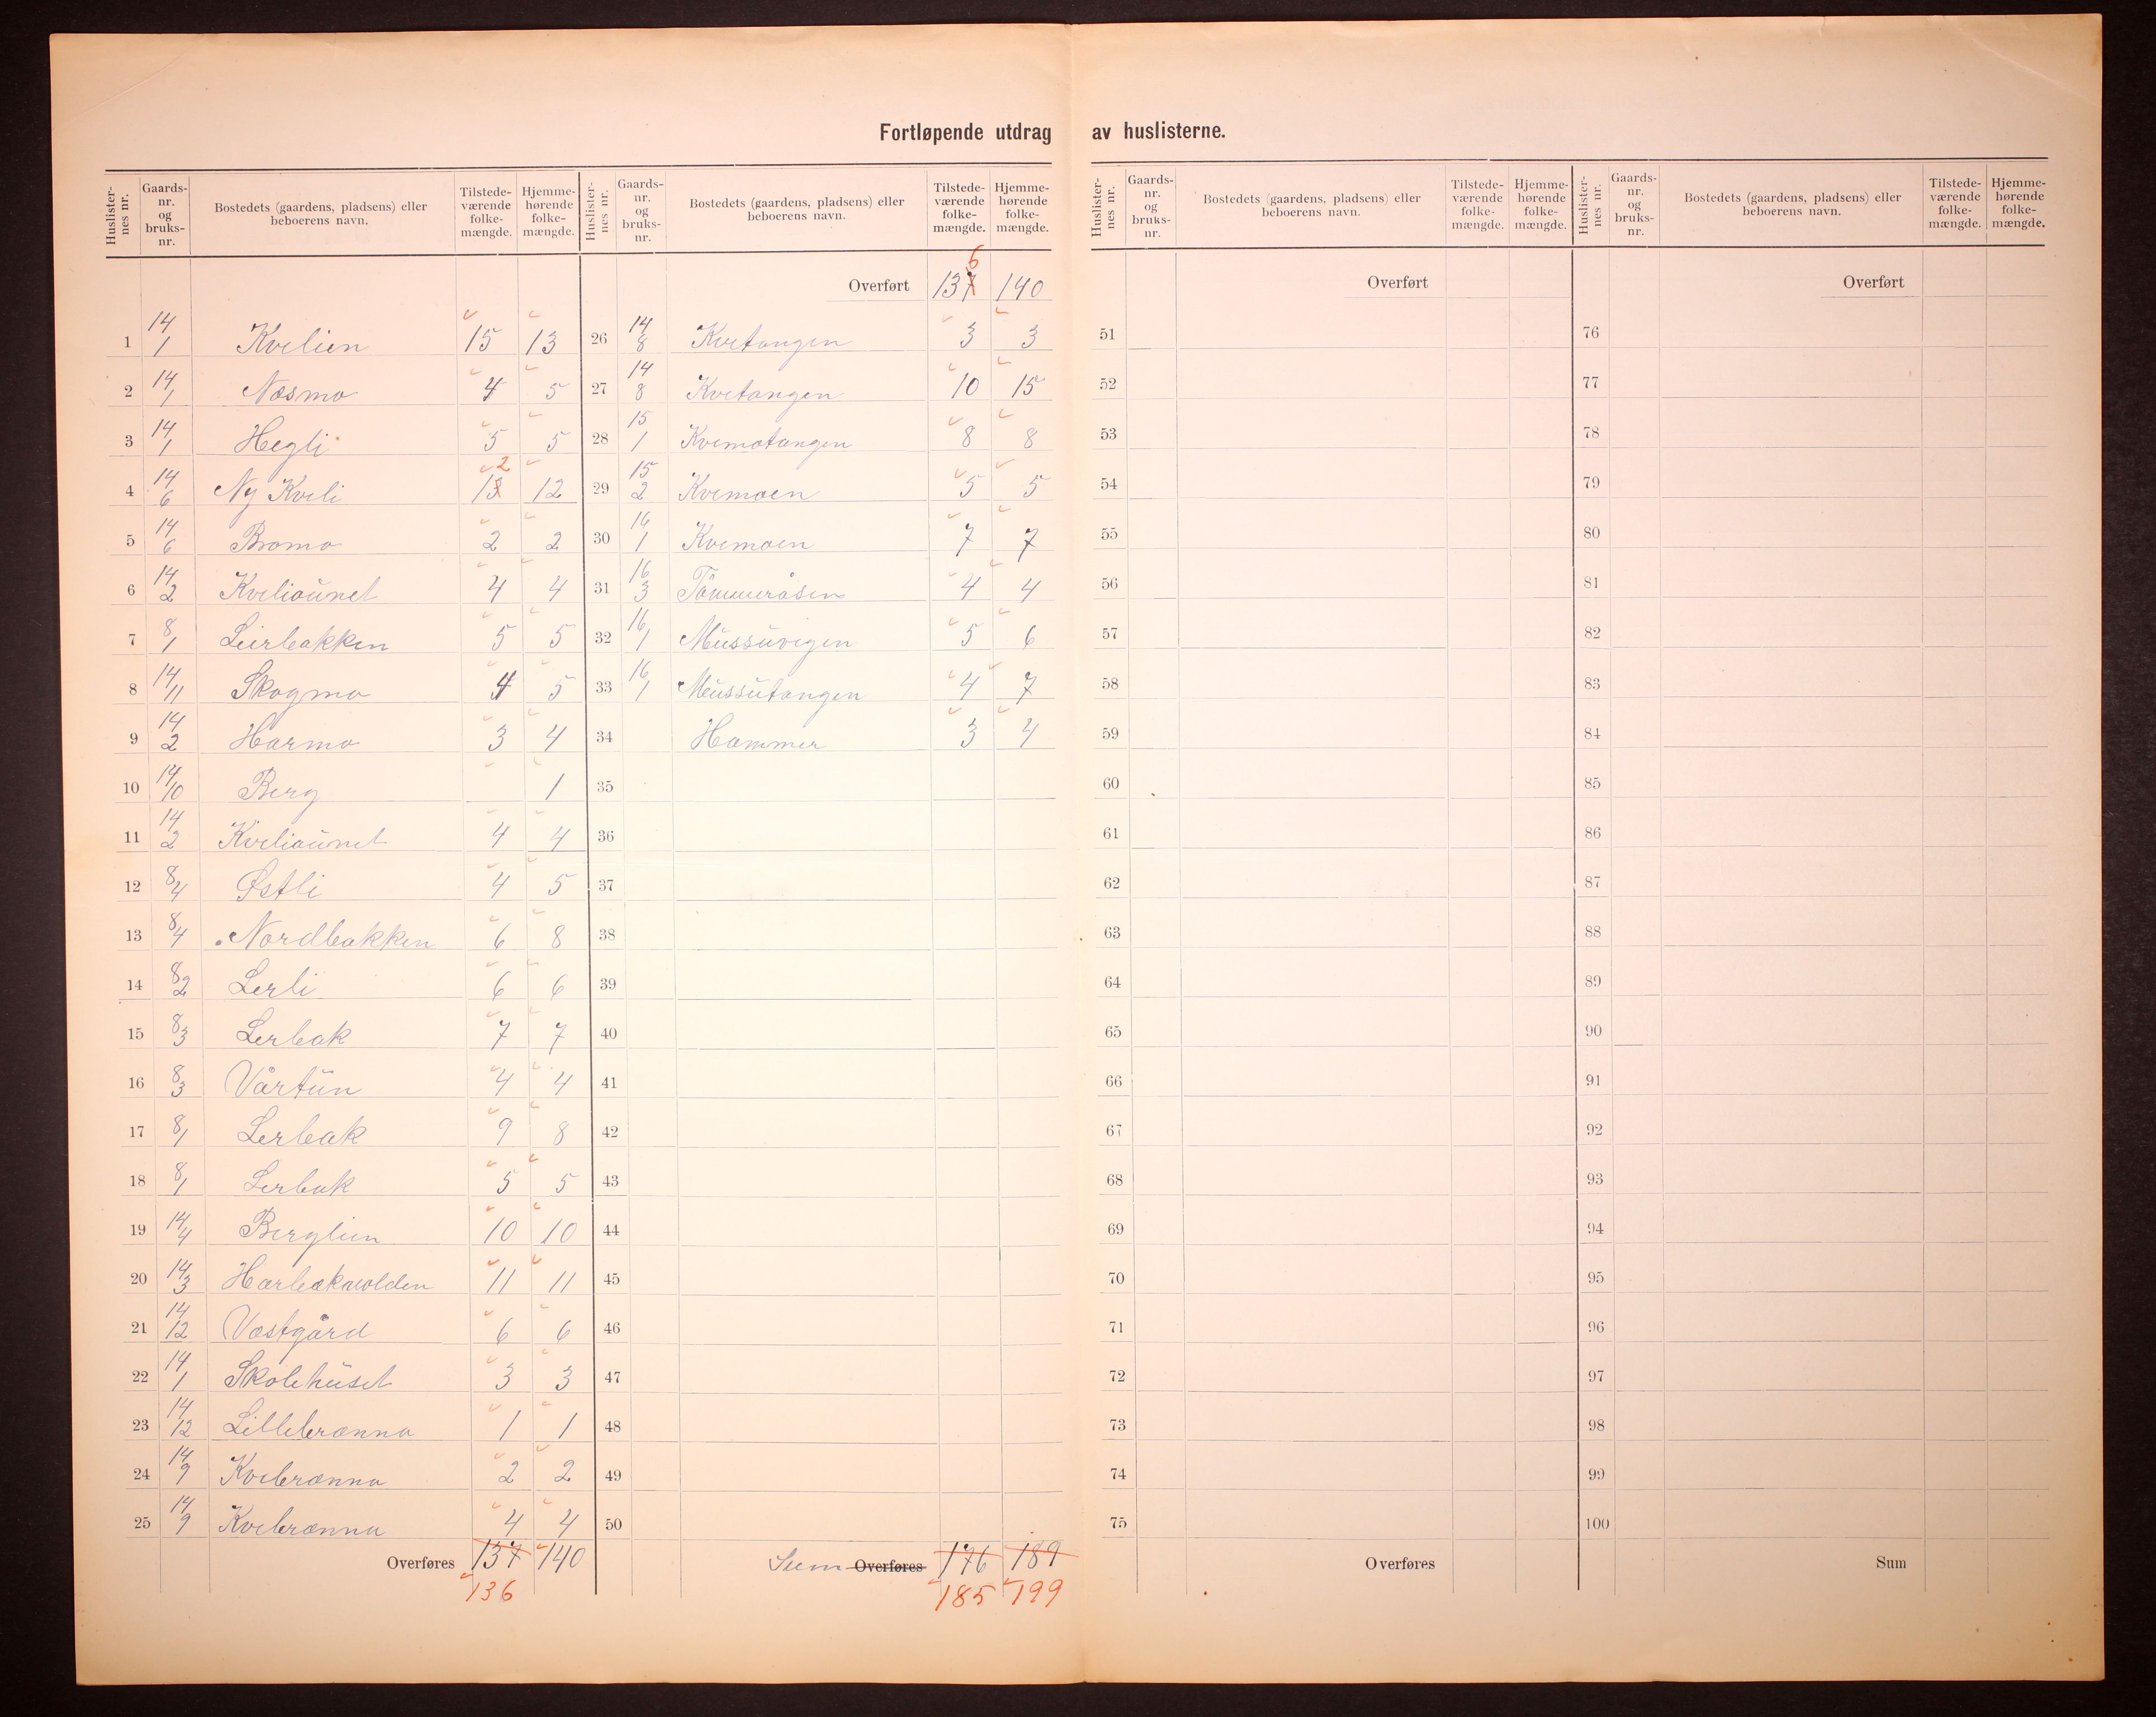 Fortløpende utdrag av huslisterne.
Huslisternes nr. Gaards-nr. og bruks-nr. Bostedets (gaardens, pladsens) eller beboerens navn. Tilstedeværende folkemængde. Hjemmehørende folkemængde.
1 14/1 Kvelien 15 13
2 14/1 Næsmo 4 5
3 14/1 Hegli 5 5
4 14/6 Ny Kveli 13 2 12
5 14/6 Bromo 2 2
6 14/2 Kveliaunet 4 4
7 8/1 Leirbakken 5 5
8 14/11 Skogmo 4 5
9 14/2 Harmo 3 4
10 14/10 Berg 1
11 14/2 Kveliaunet 4 4
12 8/4 Østli 4 5
13 8/4 Nordbakken 6 8
14 8/2 Lerli 6 6
15 8/3 Lerbak 7 7
16 8/3 Vårtun 4 4
17 8/1 Lerbak 9 8
18 8/1 Lerbak 5 5
19 14/4 Berglien 10 10
20 14/3 Hærbækavolden 11 11
21 14/12 Vestgård 6 6
22 14/1 Skolehuset 3 3
23 14/12 Lillebrænna 1 1
24 14/9 Kvebrænna 2 2
25 14/9 Kvebrænna 4 4
Overføres 137 140
136
Huslisternes nr. Gaards-nr. og bruks-nr. Bostedets (gaardens, pladsens) eller beboerens navn. Tilstedeværende folkemængde. Hjemmehørende folkemængde.
6
Overført 137 140
26 14/8 Kvetangen 3 3
27 14/8 Kvetangen 10 15
28 15/1 Kvemotangen 8 8
29 15/2 Kvemoen 5 5
30 16/1 Kvemoen 7 7
31 16/3 Tömmeråsen 4 4
32 16/1 Mussuvigen 5 6
33 16/1 Mussutangen 4 7
34 Hammer 3 4
35
36
37
38
39
40
41
42
43
44
45
46
47
48
49
50
Sum Overføres 176 189
185 199
Huslisternes nr. Gaards-nr. og bruks-nr. Bostedets (gaardens, pladsens) eller beboerens navn. Tilstedeværende folkemængde. Hjemmehørende folkemængde.
Overført
51
52
53
54
55
56
57
58
59
60
61
62
63
64
65
66
67
68
69
70
71
72
73
74
75
Overføres
Huslisternes nr. Gaards-nr. og bruks-nr. Bostedets (gaardens, pladsens) eller beboerens navn. Tilstedeværende folkemængde. Hjemmehørende folkemængde.
Overført
76
77
78
79
80
81
82
83
84
85
86
87
88
89
90
91
92
93
94
95
96
97
98
99
100
Sum